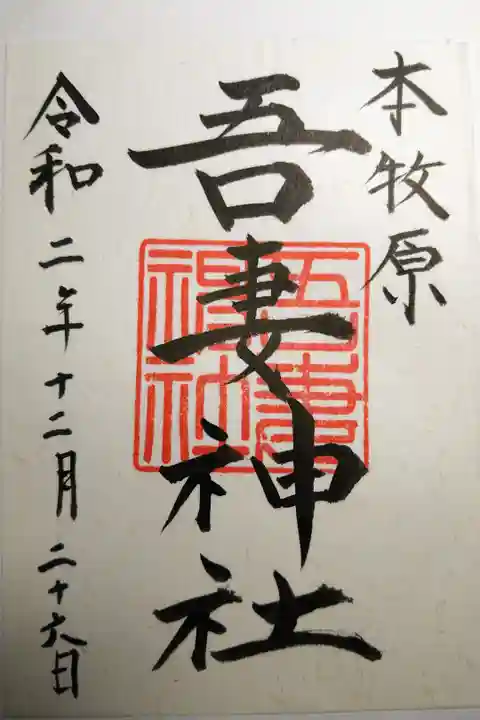 本牧原
吾妻神社
吾妻神社
令和二年十二月二十六日